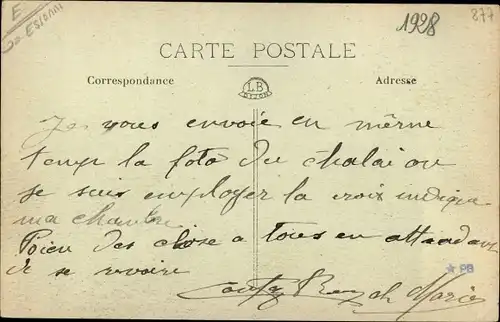 E
1928
877
CARTE POSTALE
Correspondance
LB
DIJON
Adresse
Je vous envoie en même
temp la foto du chalai ou
je suis employer la croix indique
ma chambre
Bien des chose a tous en attandant
de se revoire
Marie
PB